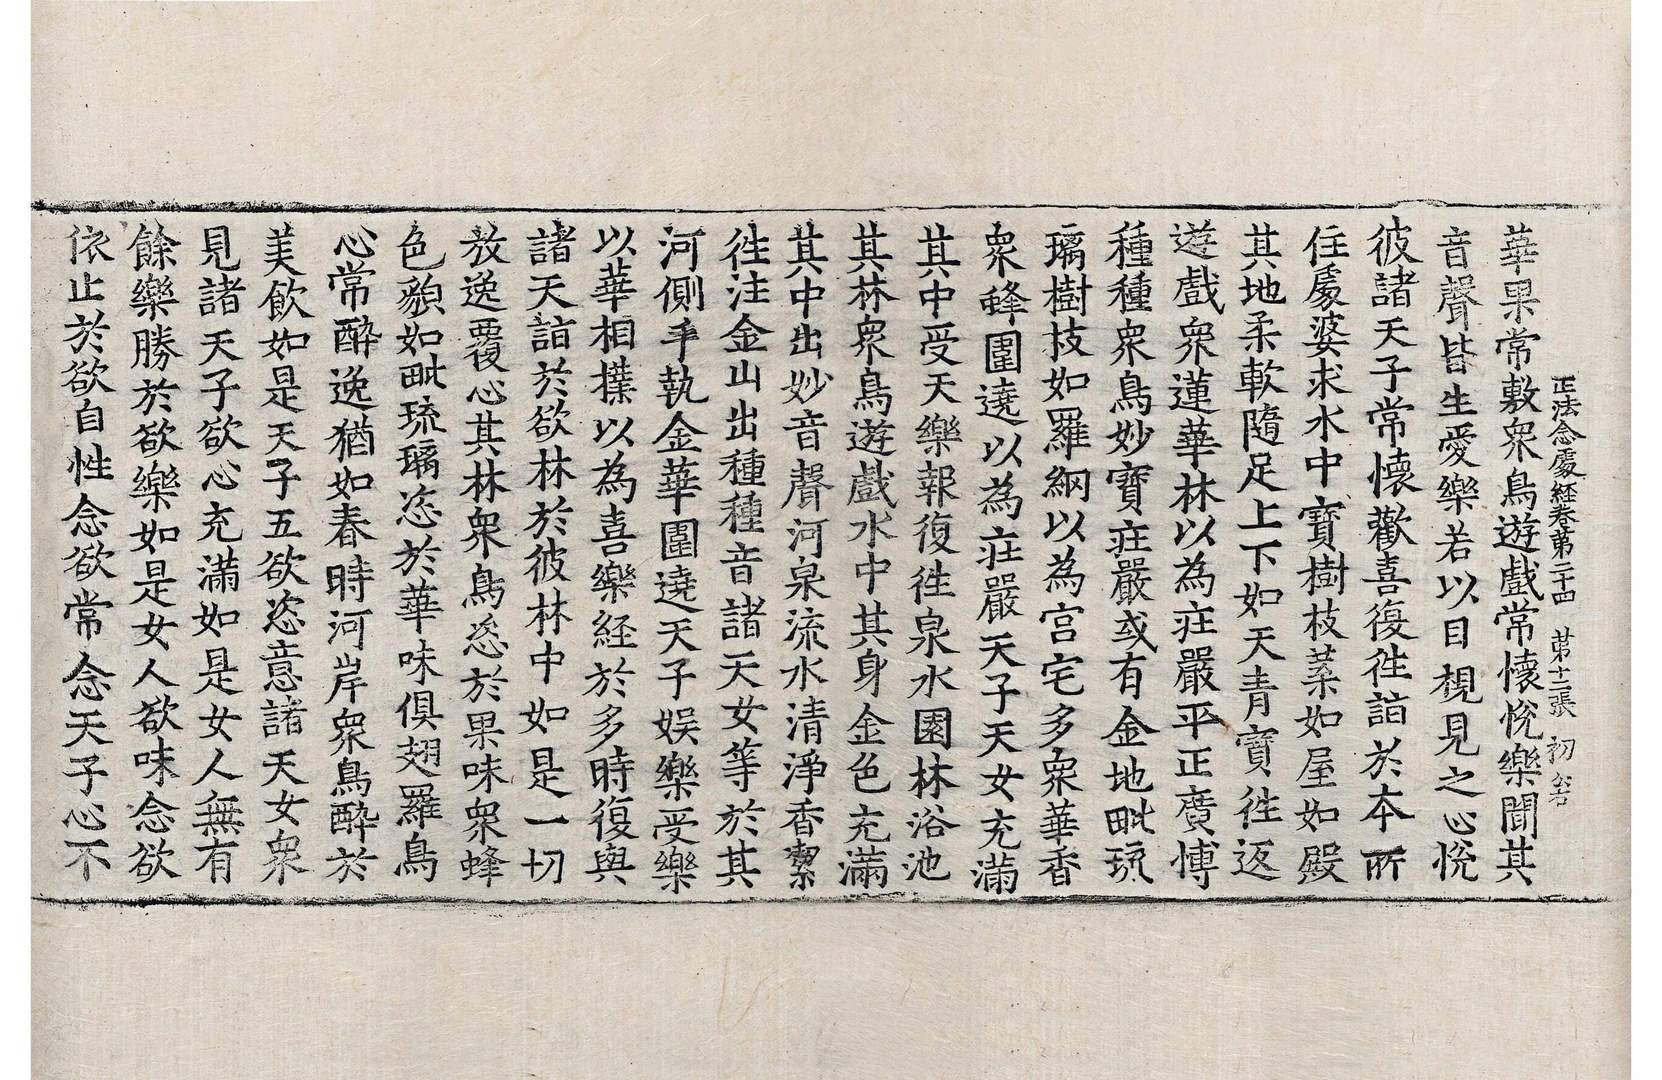 正法念處經卷第二十四　第十二張　初
華果常敷衆鳥遊戲常懷悅樂聞其
音聲皆生愛樂若以目視見之心悅
彼諸天子常懷歡喜復徃詣於本所
住處婆求水中寶樹枝葉如屋如殿
其地柔軟隨足上下如天青寶徃返
遊戲衆蓮華林以為莊嚴平正廣愽
種種衆鳥妙寶莊嚴或有金地毗琉
璃樹枝如羅網以為宮宅多衆華香
衆蜂圍遶以為莊嚴天子天女充滿
其中受天樂報復徃泉水園林浴池
其林衆鳥遊戲水中其身金色充滿
其中出妙音聲河泉流水清淨香潔
徃注金山出種種音諸天女等於其
河側手執金華圍遶天子娛樂受樂
以華相㩧以為喜樂経於多時復與
諸天詣於欲林於彼林中如是一切
放逸覆心其林衆鳥恣於果味衆蜂
色貌如毗琉璃恣於華味俱翅羅鳥
心常醉逸猶如春時河岸衆鳥醉於
美飲如是天子五欲恣意諸天女衆
見諸天子欲心充滿如是女人無有
餘樂勝於欲樂如是女人欲味念欲
依止於欲自性念欲常念天子心不